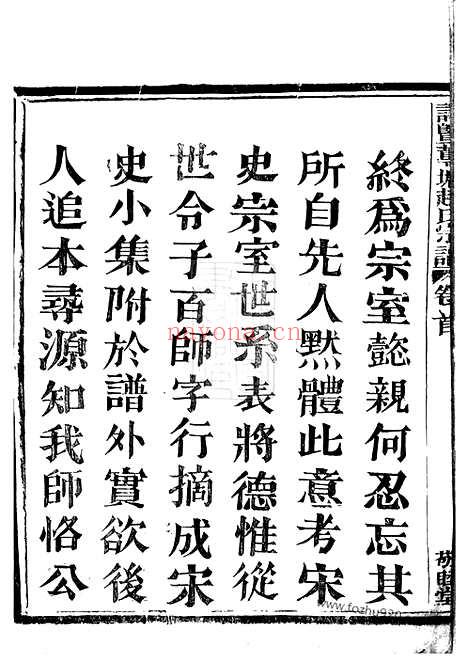 終爲宗室懿親何忍忘其
所自先人默體此意考宋
史宗室世系表將德惟從
世令子百師字行摘成宋
史小集附於譜外實欲後
人追本尋源知我師恪公
卷首
nayong.cn
www.fozhu920